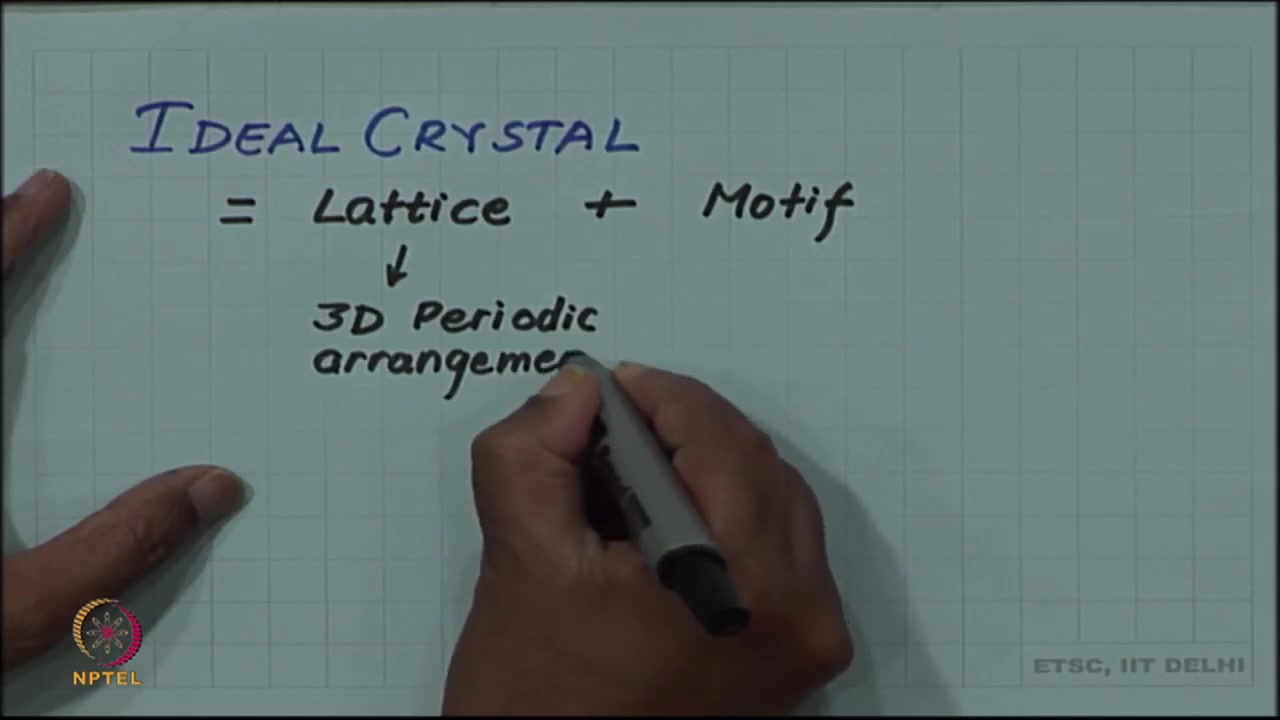 IDEAL CRYSTAL
= Lattice + Motif
↓
3D Periodic
arrangemen
NPTEL
ETSC, IIT DELHI